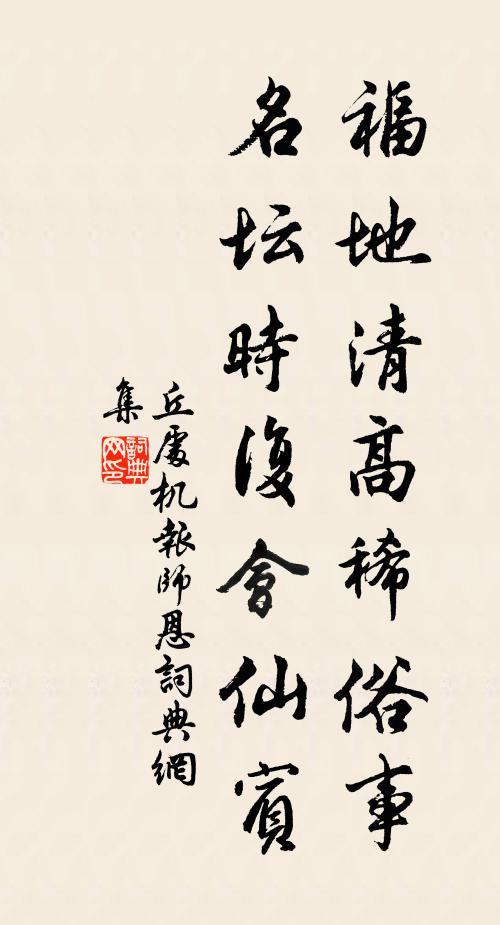 福地清高稀俗事
名坛時復會仙賓
丘處机報師恩詞典網
集
詞典網印